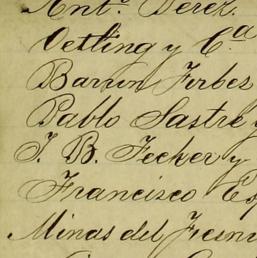 Antº. Perez.
Oetling y Cª
Barron Forbes
Pablo Sastre y
J. B. Jecker y
Francisco
Minas del